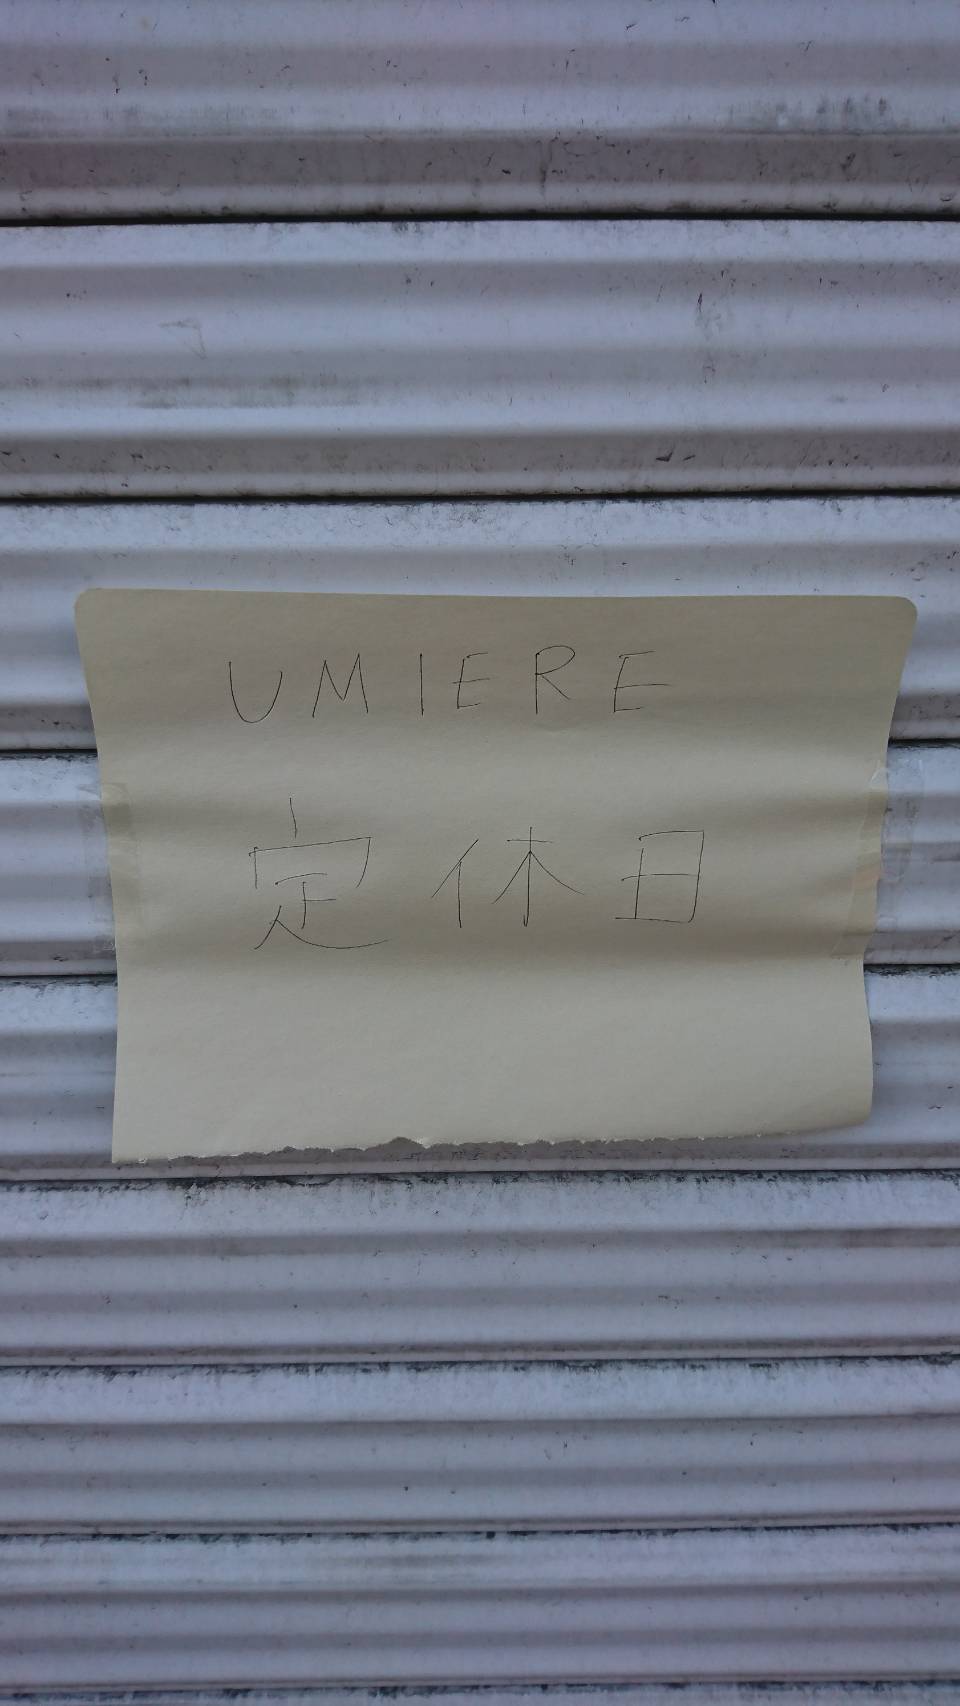 UMIERE
定休日